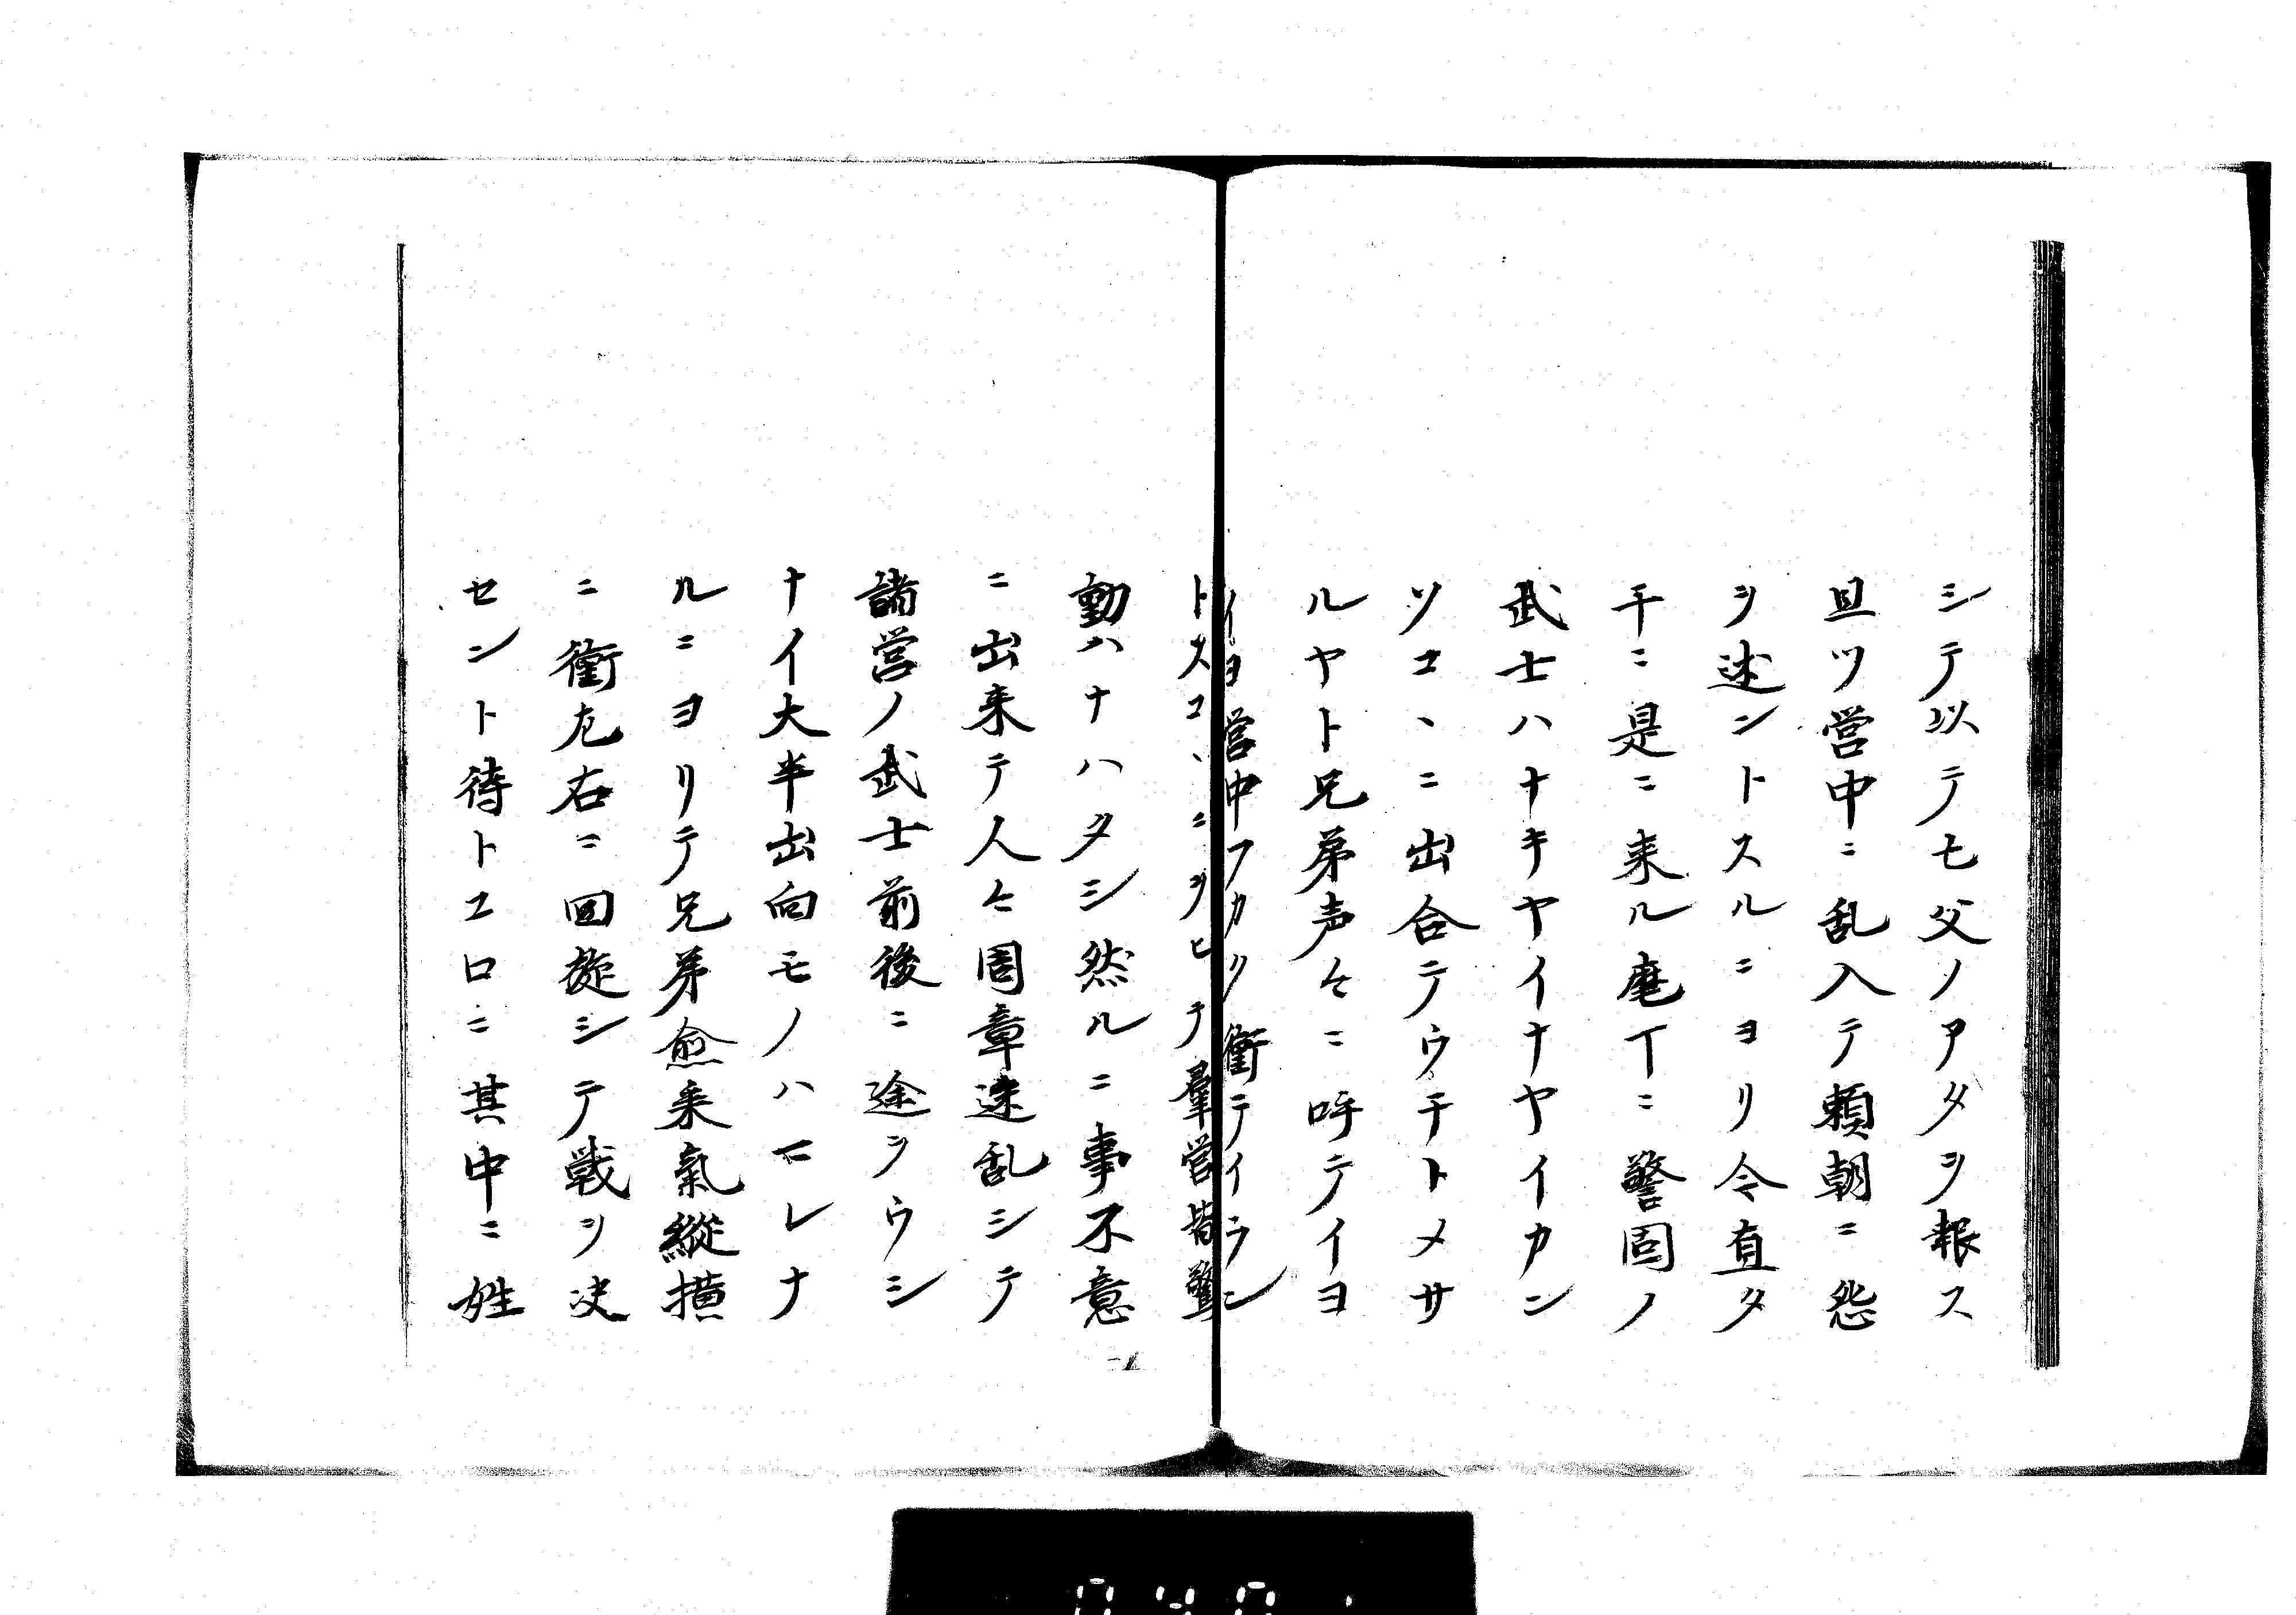 シテ以テモ父ノアタヲ報ス
且ツ営中ニ乱入テ頼朝ニ怨
ヲ述ントスルニヨリ今直タ
チニ是ニ来ル麾下ニ警固ノ
武士ハナキヤイナヤイカン
ソコヽニ出合テウチトメサ
ルヤト兄弟声々ニ呼テイヨ
イヨ営中フカク衝テイラン
トスコヽニヲヒテ羣営皆驚
動ハナハタシ然ルニ事不意
ニ出来テ人々周章迷乱シテ
諸営ノ武士前後ニ途ヲウシ
ナイ大半出向モノハマレナ
ルニヨリテ兄弟愈乗氣縦横
ニ衝左右ニ回旋シテ戦ヲ决
セント待トコロニ其中ニ姓